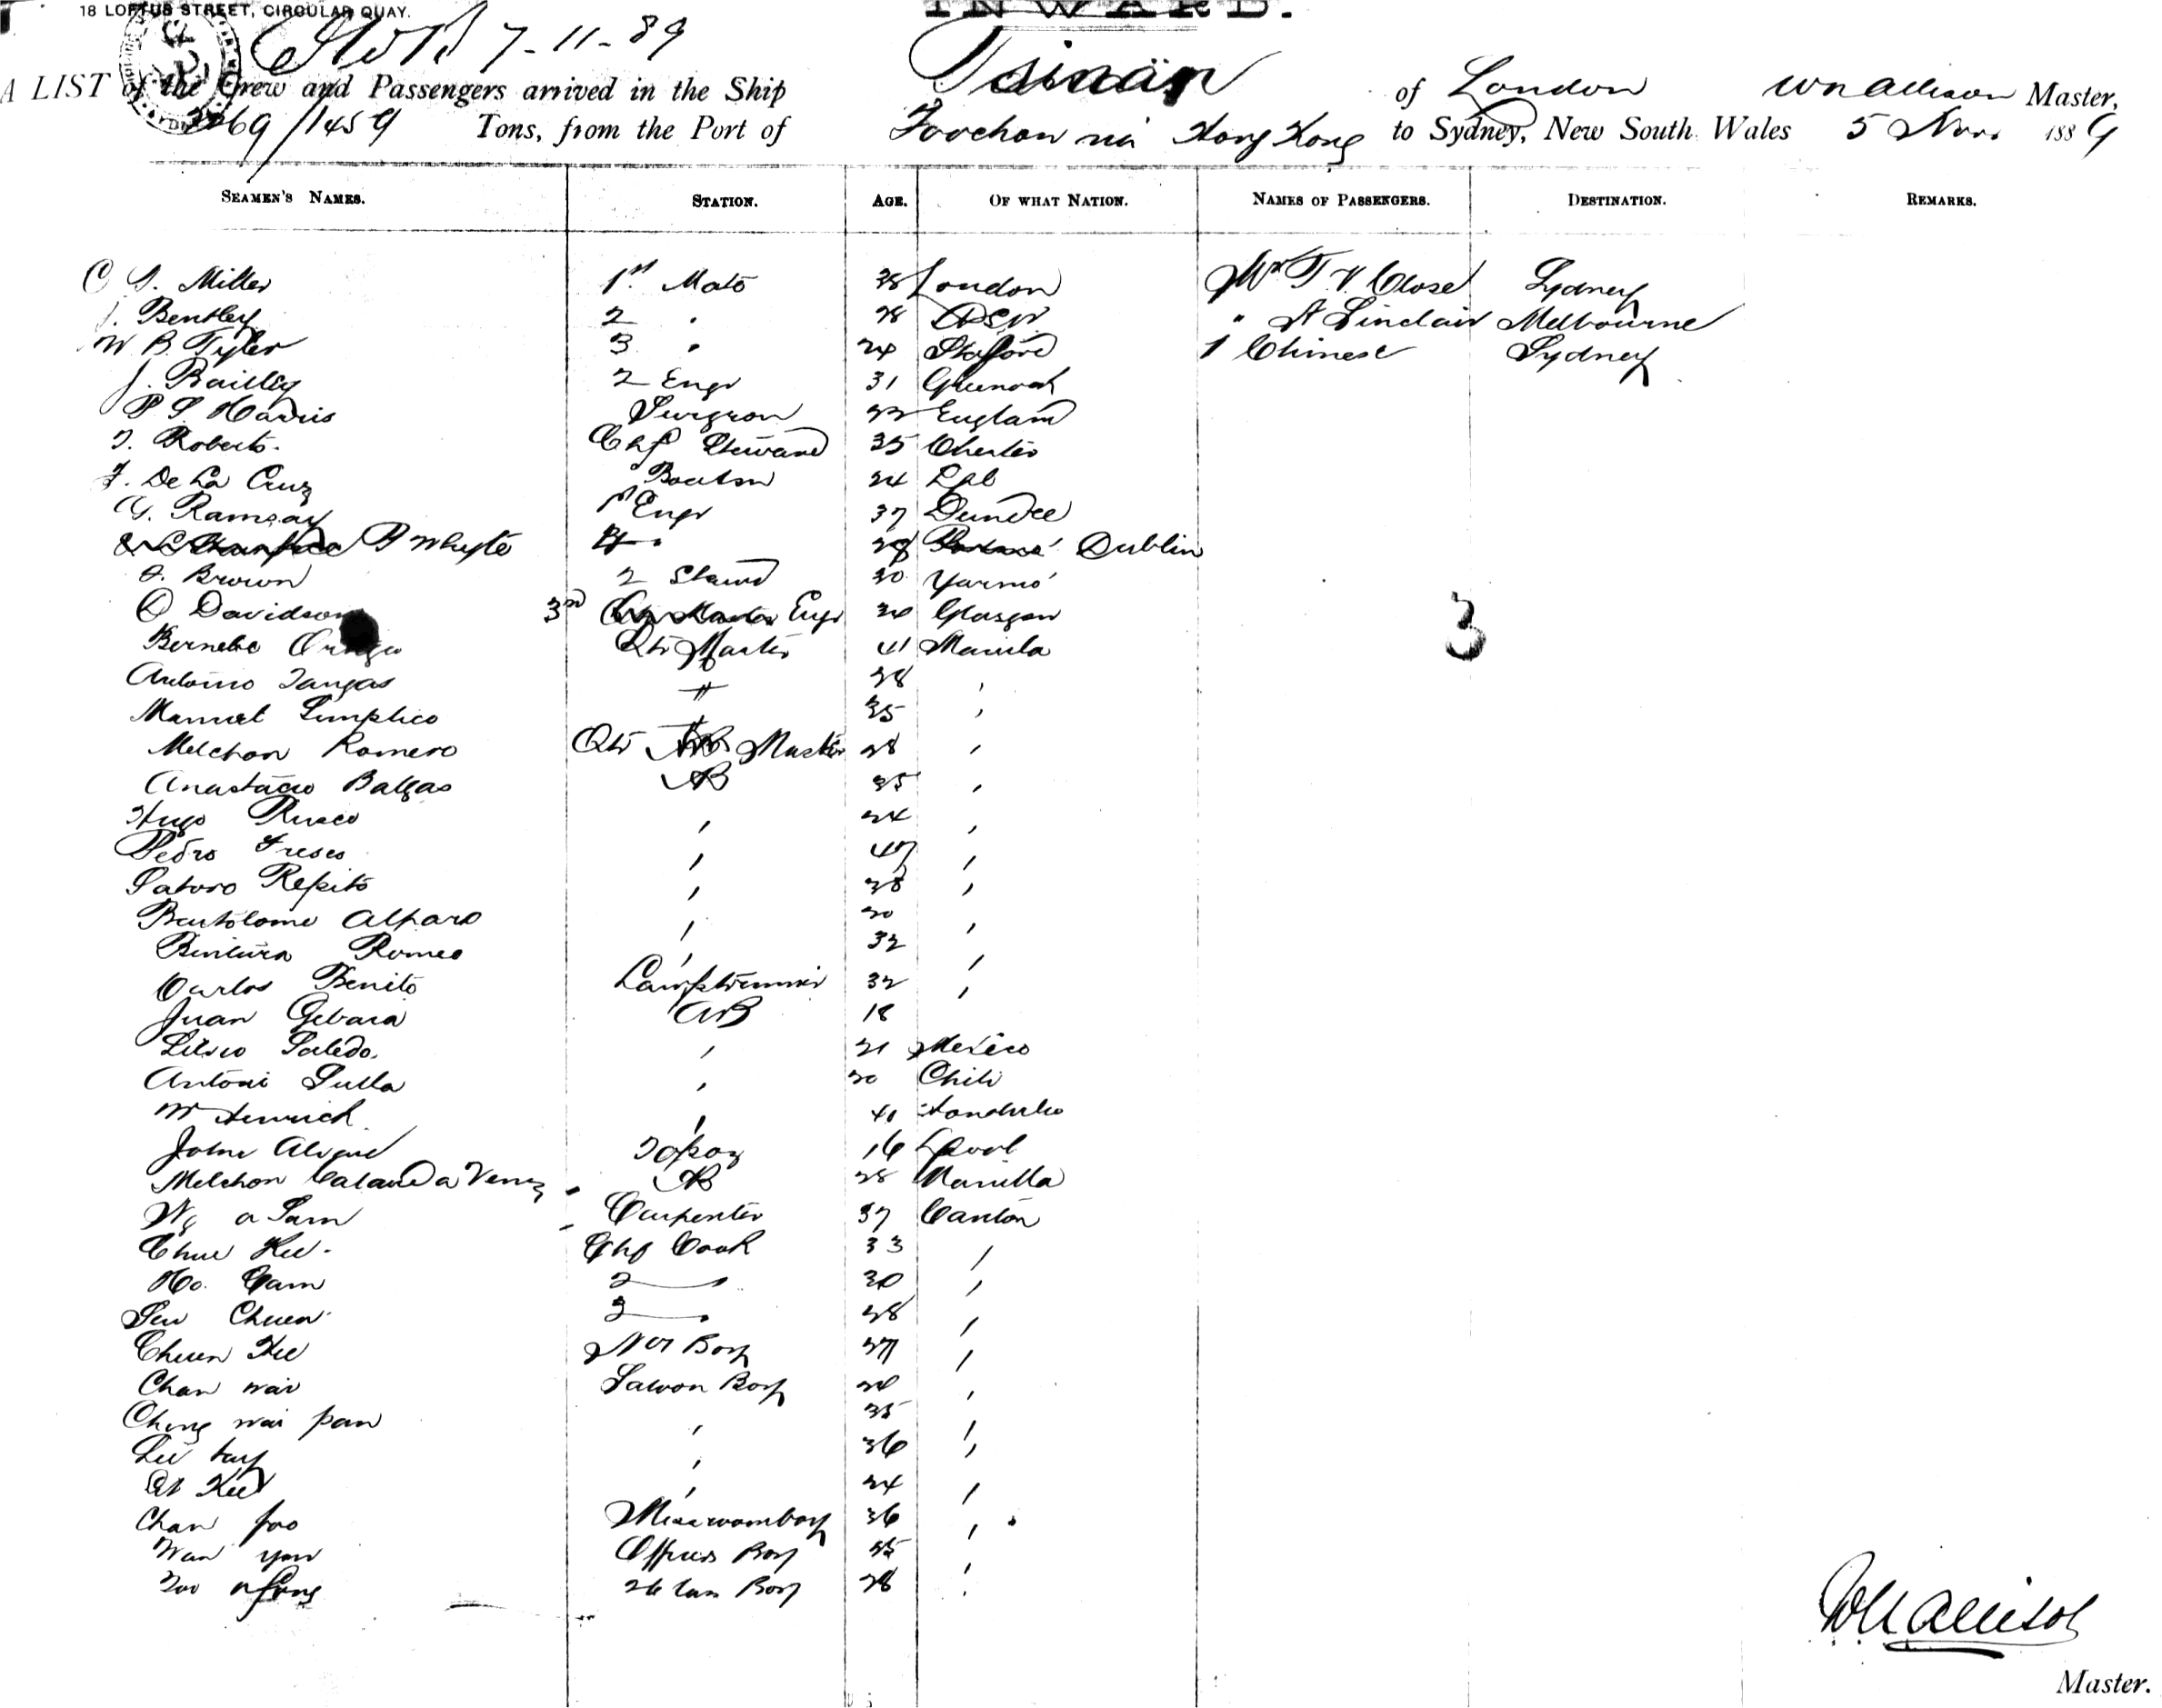 18 LOFTUS STREET, CIRCULAR QUAY.
INWARD.
7-11-89
A LIST of the Crew and Passengers arrived in the Ship Tsinan of London W N Allison Master,
2269/1459 Tons, from the Port of Foochow via Hong Kong to Sydney, New South Wales 5 Nov 1889
SEAMEN'S NAMES. STATION. AGE. OF WHAT NATION. NAMES OF PASSENGERS. DESTINATION. REMARKS.
C S. Miller 1st Mate 38 London Mr T. V. Close Sydney
J. Bentley 2 " 28 " A Sinclair Melbourne
W B. Tyler 3 " 24 Stafford 1 Chinese Sydney
J. Bailley 2 Engr 31 Greenock
P S Harris Surgeon England
T. Roberts. Chf Steward 35 Chester
F. De La Cruz 24
G. Ramsay 1st Engr 37 Dundee
P Whyte Dublin
Brown 2 Stewd 30 Yarmo'
Davidson 3rd Engr Glasgow
Bernebe Qtr Master 41 Manila
Antonio Tangas " 28 "
Manuel Simplico " 35 "
Melchor Romero Qtr Master 28 "
Anastacio Balgas AB 35 "
Hugo " 24 "
Pedro " 47 "
Saturo Repito " 38 "
Bartolome Alfaro " "
Bintura Romeo " 32 "
Carlos Benito Lamptrimmer 32 "
Juan Gebara AB 18
Saledo. " 21 Mexico
Antoni Sulla " Chili
W Heinrich " 41
John " 16 Lpool
Melchor AB 28 Manilla
Ng a Sam Carpenter 37 Canton
Chue Kee. Chf Cook 33 "
Ho. Gam 2 " 30 "
Chuen. 3 " 28 "
Chuen Kee No 1 Boy "
Chan wai Saloon Boy "
Ching wai pan " 35 "
Lee " 36 "
At Kee " 24 "
Chan foo Messroomboy 36 "
Wan yow Officers Boy "
Boy 28 "
3
W N Allison
Master.